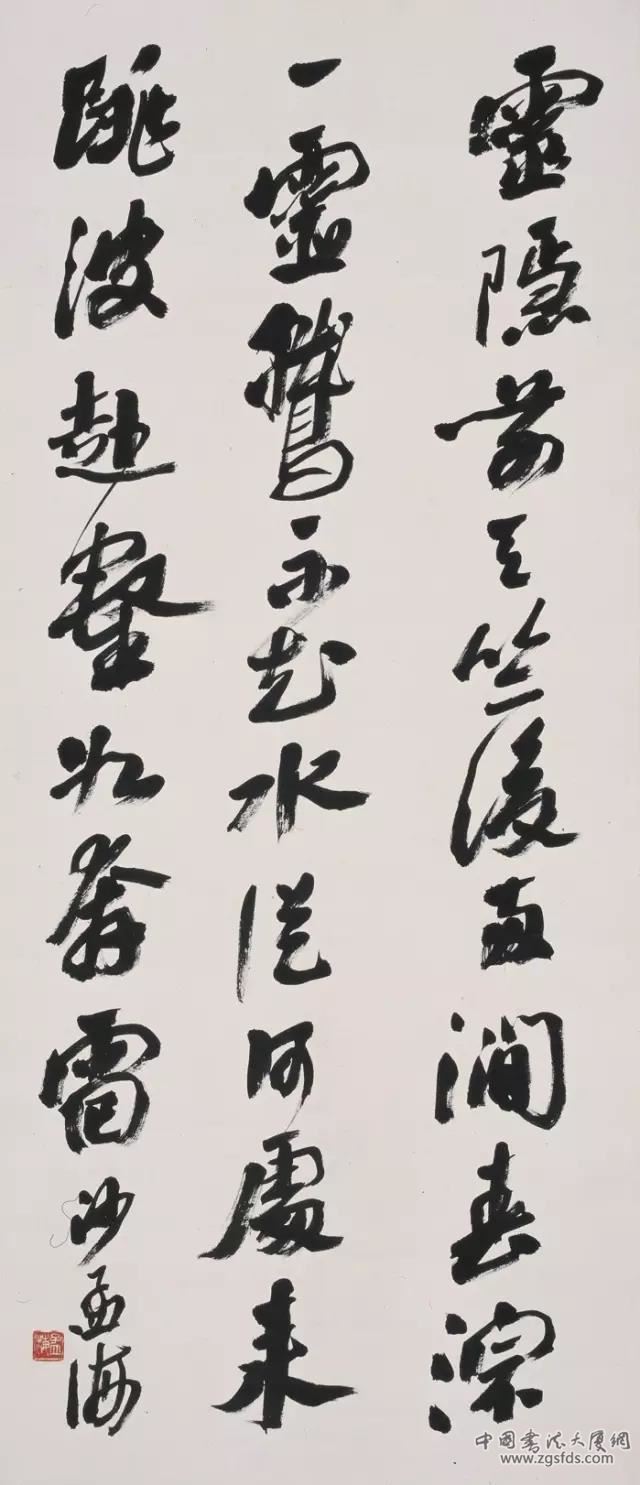 靈隱前天竺後兩澗春淙
一靈鷲不知水從何處來
跳波赴壑如奔雷 沙孟海
孟海
中國書法大廈網
www.zgsfds.com